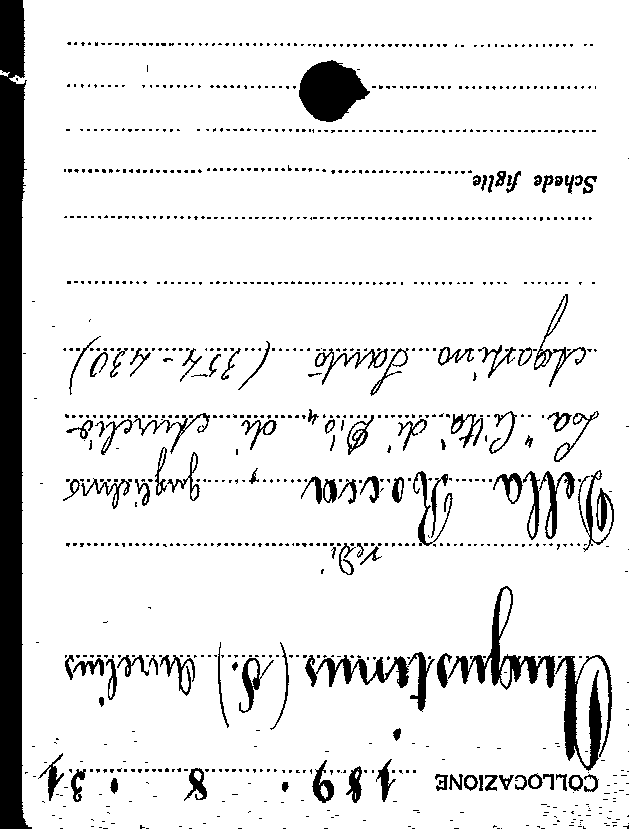 COLLOCAZIONE 189 . 8 . 31
Augustinus (S.) Aurelius
vedi
Della Rocca, Guglielmo
La "Città di Dio" di Aurelio
Agostino Santo (354-430)
Schede figlie